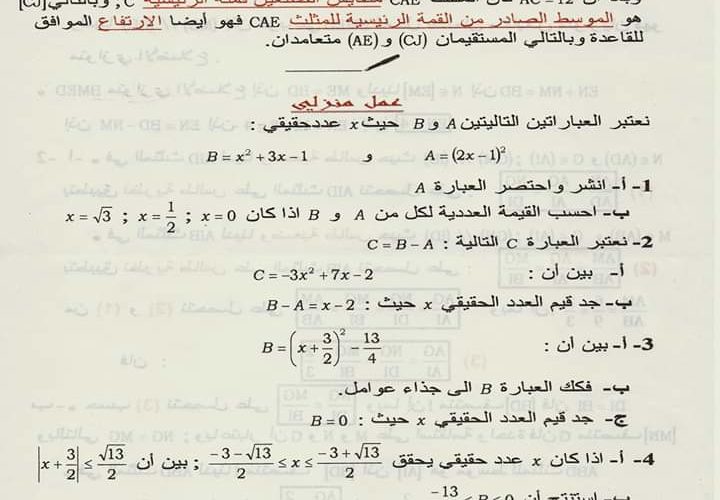 هو الموسط الصادر من القمة الرئيسية للمثلث CAE فهو أيضا الارتفاع الموافق
للقاعدة وبالتالي المستقيمان (CJ) و (AE) متعامدان.
عمل منزلي
نعتبر العبارتين التاليتين A و B حيث x عدد حقيقي :
A = (2x - 1)² و B = x² + 3x - 1
1- أ- انشر واختصر العبارة A
ب- احسب القيمة العددية لكل من A و B اذا كان x = 0 ; x = 1/2 ; x = √3
2- نعتبر العبارة C التالية : C = B - A
أ- بين أن : C = -3x² + 7x - 2
ب- جد قيم العدد الحقيقي x حيث : B - A = x - 2
3- أ- بين أن : B = (x + 3/2)² - 13/4
ب- فكك العبارة B الى جذاء عوامل.
ج- جد قيم العدد الحقيقي x حيث : B = 0
4- أ- اذا كان x عدد حقيقي يحقق (-3 - √13)/2 ≤ x ≤ (-3 + √13)/2 ; بين أن |x + 3/2| ≤ √13/2